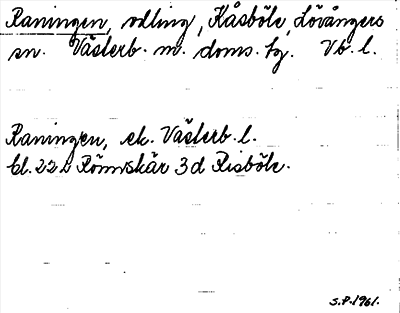 Raningen, odling, Kåsböle, Lövångers
sn. Västerb. m. doms. tg. Vb. l.
Raningen, ek. Västerb. l.
bl. 22 L Rönnskär 3d Risböle.
S.P. 1961.